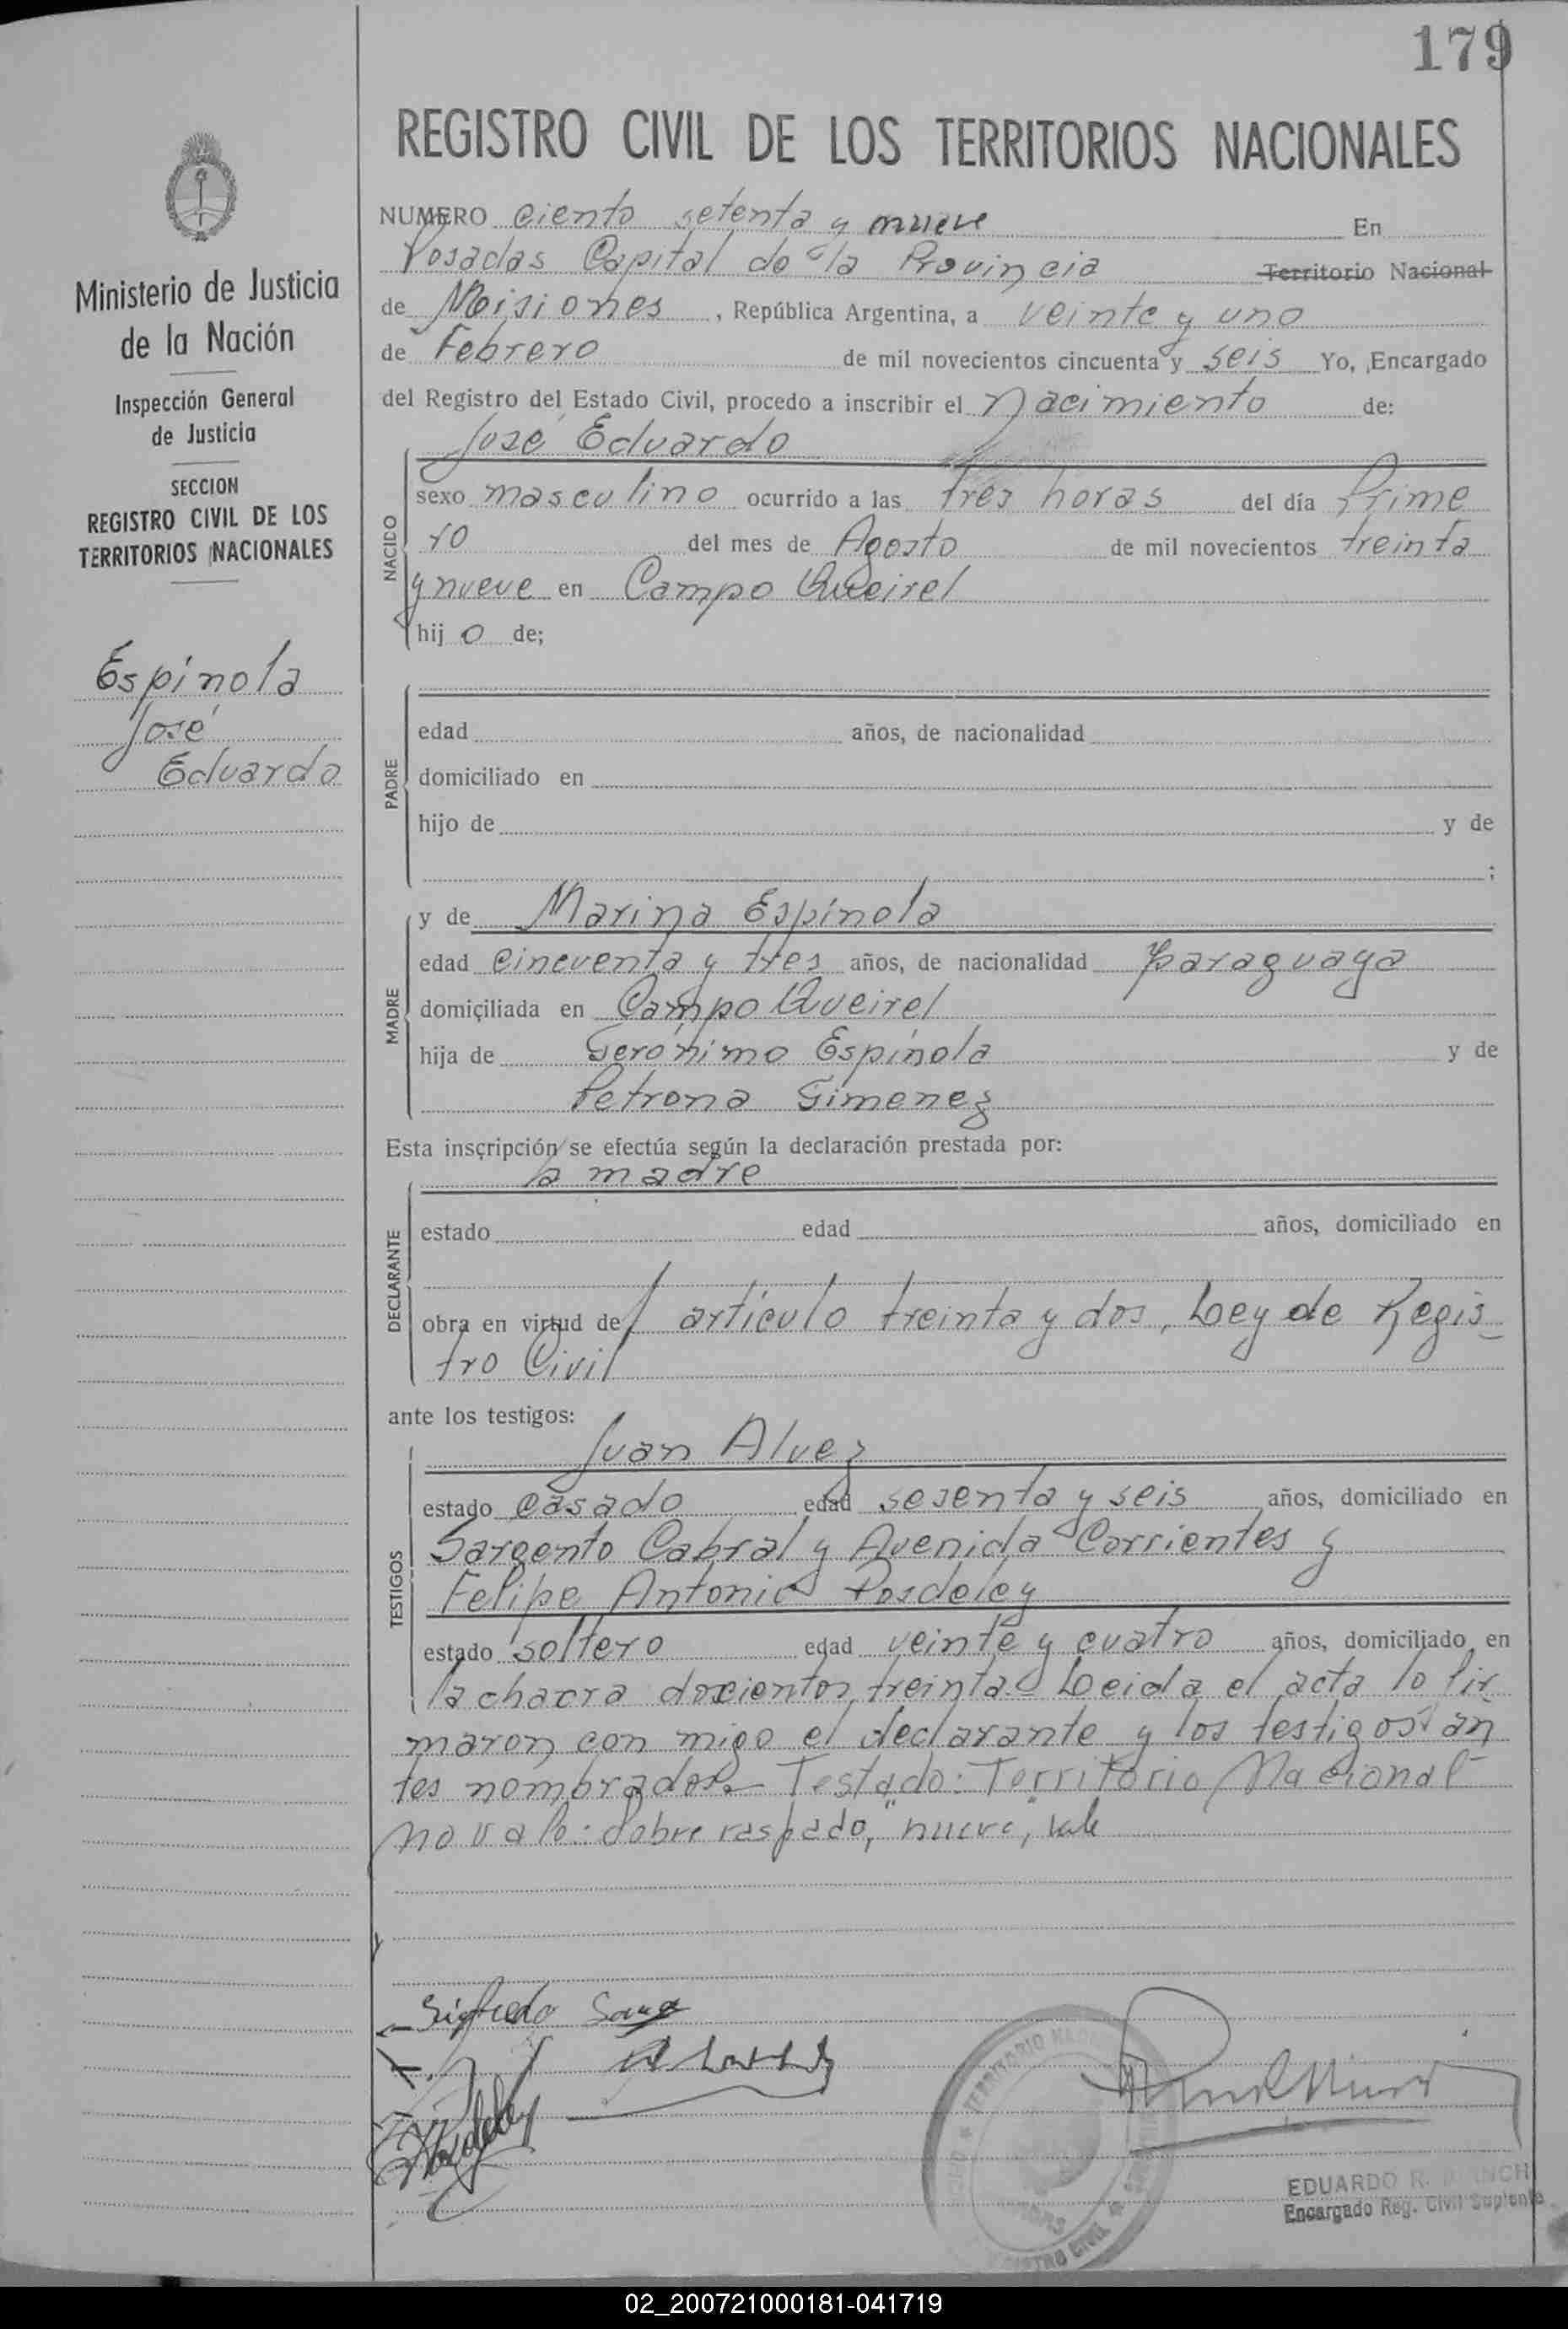 179
REGISTRO CIVIL DE LOS TERRITORIOS NACIONALES
Ministerio de Justicia
de la Nación
Inspección General
de Justicia
SECCION
REGISTRO CIVIL DE LOS
TERRITORIOS NACIONALES
Espínola
José
Eduardo
NUMERO ciento setenta y nueve En
Posadas Capital de la Provincia Territorio Nacional
de Misiones, República Argentina, a veinte y uno
de Febrero de mil novecientos cincuenta y seis Yo, Encargado
del Registro del Estado Civil, procedo a inscribir el Nacimiento de:
José Eduardo
NACIDO
sexo masculino ocurrido a las tres horas del día Prime
ro del mes de Agosto de mil novecientos treinta
y nueve en Campo Queirel
hij o de;
PADRE
edad años, de nacionalidad
domiciliado en
hijo de y de
;
MADRE
y de Marina Espínola
edad cincuenta y tres años, de nacionalidad paraguaya
domiciliada en Campo Queirel
hija de Geronimo Espínola y de
Petrona Gimenez
Esta inscripción se efectúa según la declaración prestada por:
la madre
DECLARANTE
estado edad años, domiciliado en
obra en virtud del artículo treinta y dos, Ley de Regis-
tro Civil
ante los testigos:
Juan Alvez
TESTIGOS
estado casado edad sesenta y seis años, domiciliado en
Sargento Cabral y Avenida Corrientes y
Felipe Antonio Posdeley
estado soltero edad veinte y cuatro años, domiciliado en
la chacra docientos treinta. Leida el acta lo fir
maron con migo el declarante y los testigos an
tes nombrados. Testado: Territorio Nacional
no vale: Sobre raspado, "nueve", vale
Sigfredo
Posdeley
TERRITORIO
REGISTRO CIVIL
EDUARDO R.
Encargado Reg. Civil Suplente
02_200721000181-041719